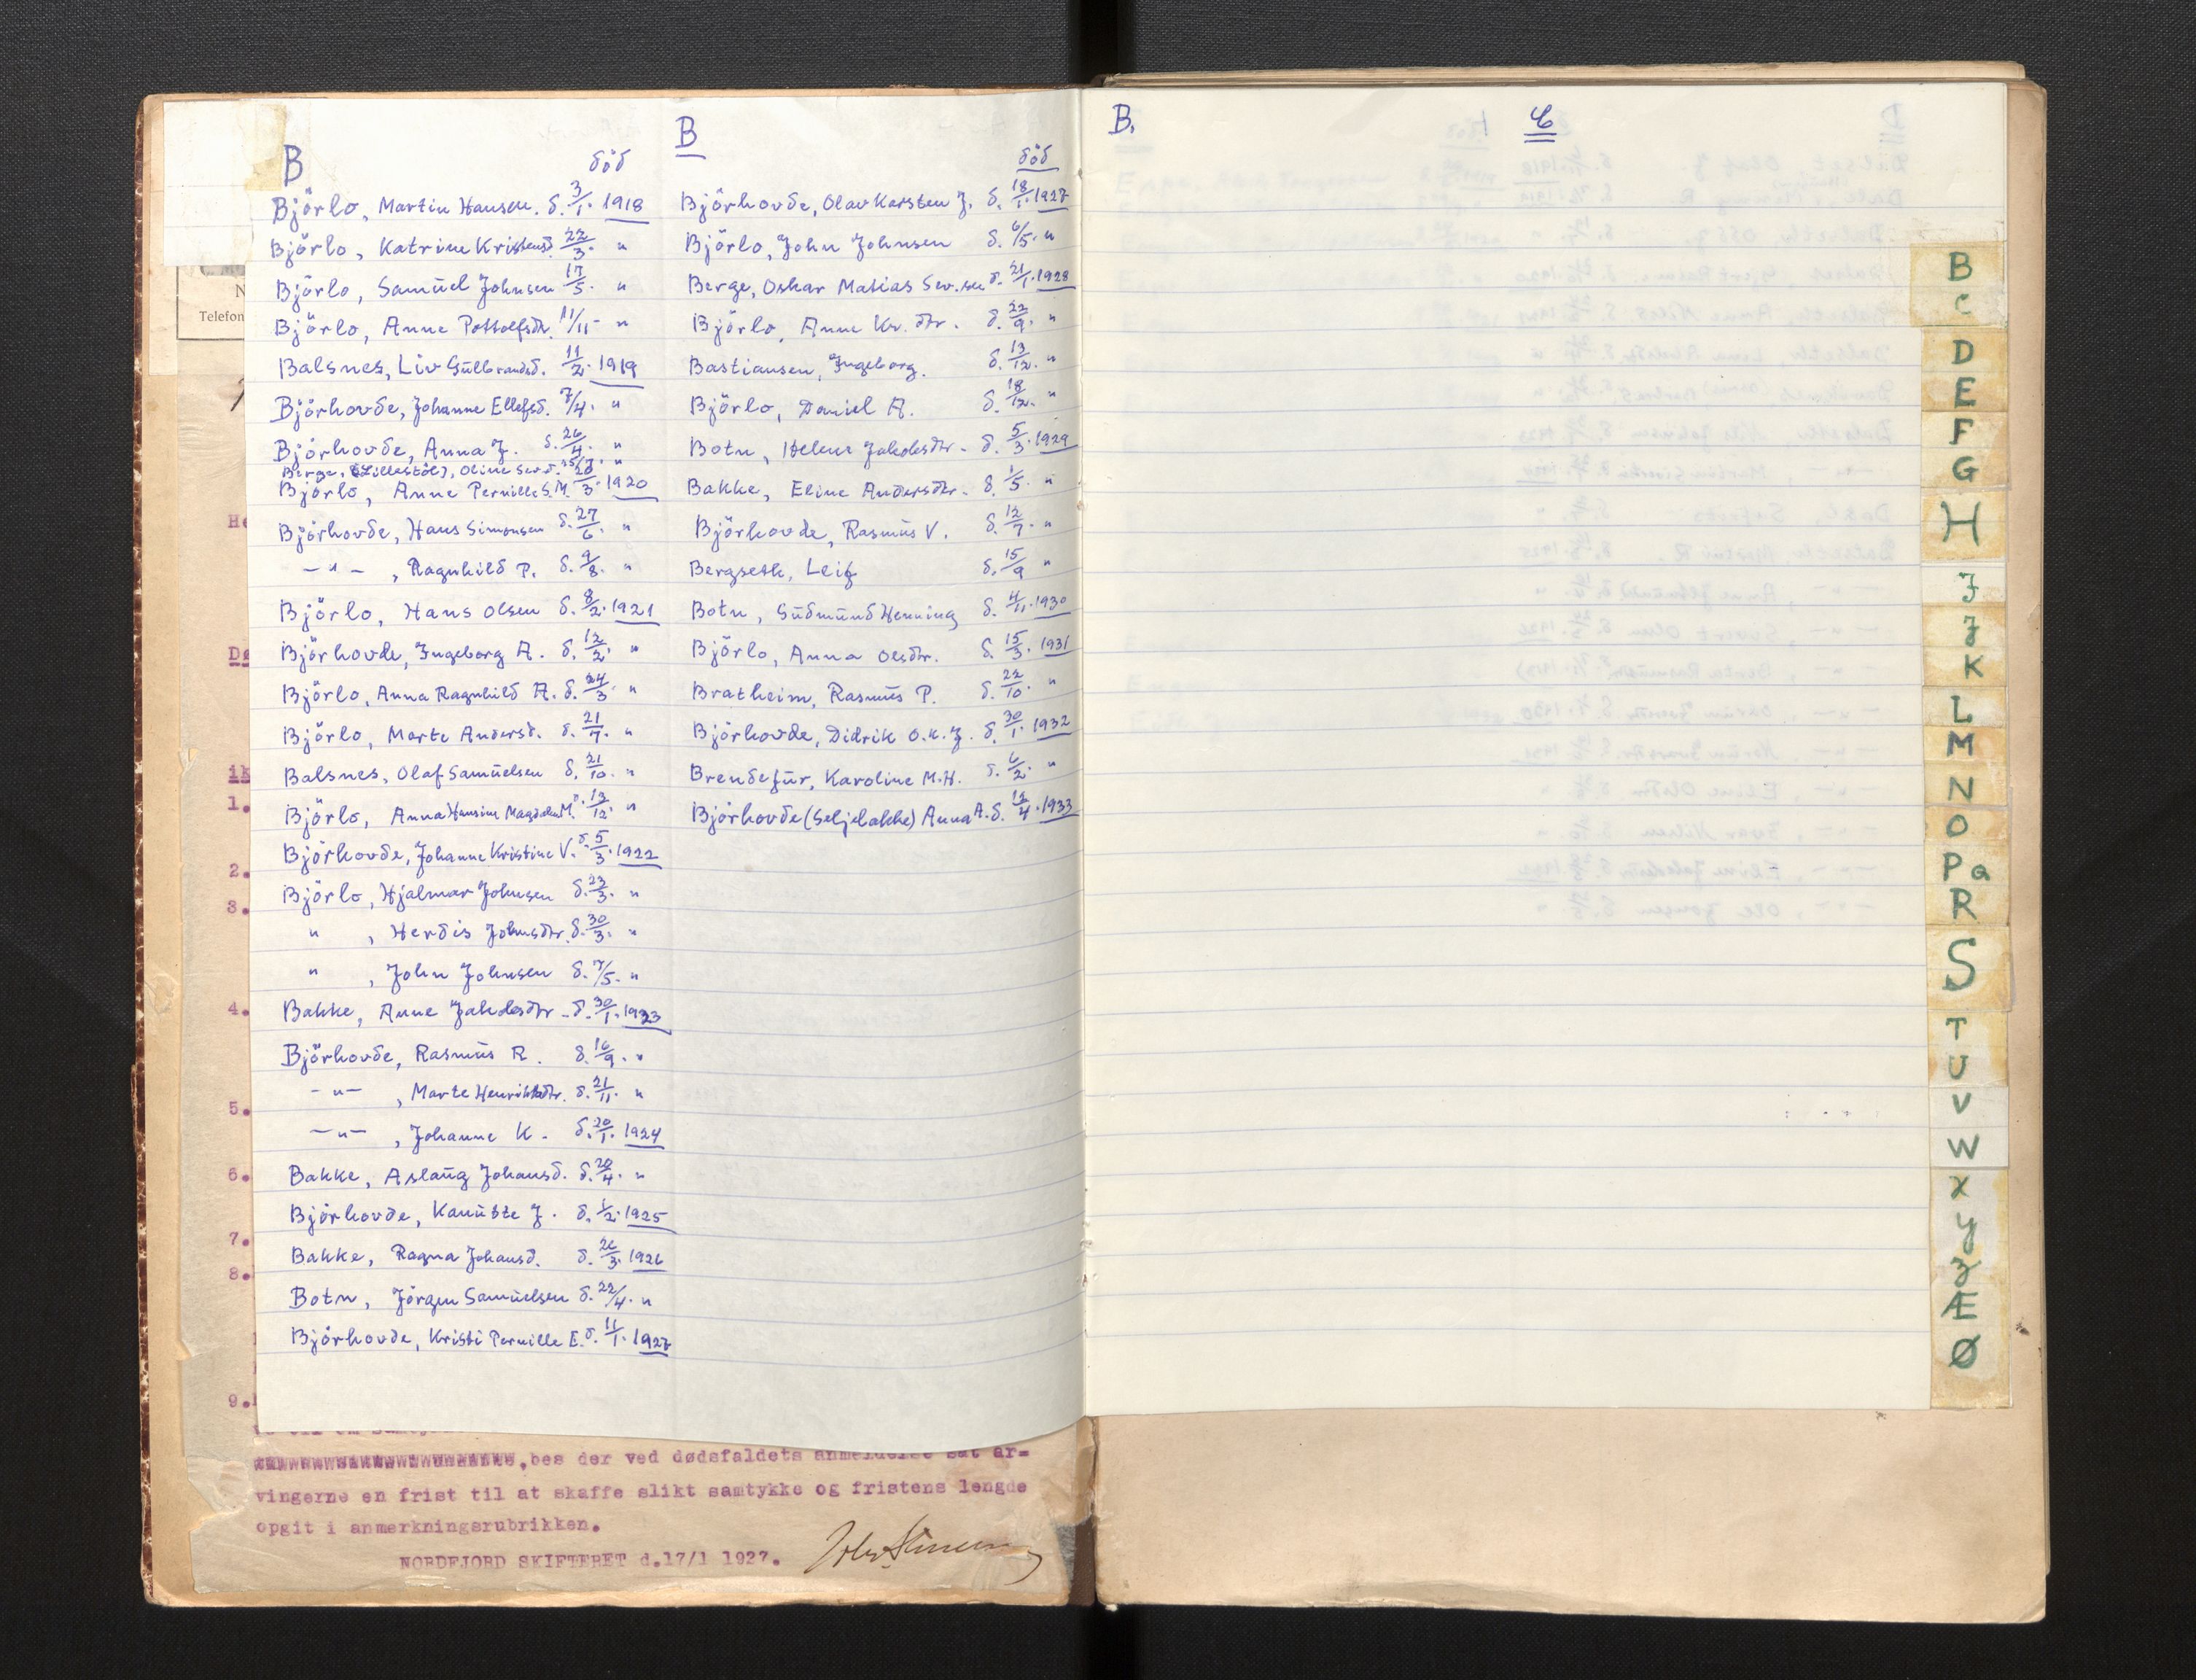 B
död
Björlo, Martin Hansen. d. 3/1. 1918
Björlo, Katrine Kristensd. 22/3. "
Björlo, Samuel Johnsen 17/5. "
Björlo, Anne Pottolfsdtr. 11/11 - "
Balsnes, Liv Gulbrandsd. 11/2. 1919
Björhovde, Johanne Ellefsd. 7/4. "
Björhovde, Anna J. d. 26/4. "
Berge, (Lillestöl), Oline Sevd.
Björlo, Anne Pernille S.M. 20/3. 1920
Björhovde, Hans Simonsen d. 27/6. "
— " — , Ragnhild P. d. 9/8. "
Björlo, Hans Olsen d. 8/2. 1921
Björhovde, Ingeborg A. d. 12/2. "
Björlo, Anna Ragnhild A. d. 24/3. "
Björlo, Marte Andersd. d. 21/7. "
Balsnes, Olaf Samuelsen d. 21/10. "
Björlo, Anna Hansine Magdalena M. d. 13/12. "
Björhovde, Johanne Kristine V. d. 5/3. 1922
Björlo, Hjalmar Johnsen d. 23/3. "
" , Herdis Johnsdtr. d. 30/3. "
" , John Johnsen d. 7/5. "
Bakke, Anne Jakobsdtr - d. 30/1. 1923
Björhovde, Rasmus R. d. 16/9. "
— " — , Marte Henriksdtr. d. 21/11. "
— " — , Johanne K. d. 20/1. 1924
Bakke, Aslaug Johansd. d. 20/4. "
Björhovde, Kanutte J. d. 1/2. 1925
Bakke, Ragna Johansd. d. 26/3. 1926
Botn, Jörgen Samuelsen d. 22/4. "
Björhovde, Kristi Pernille E. d. 11/1. 1927
B
död
Björhovde, Olav Karsten J. d. 18/1. 1927
Björlo, John Johnsen d. 6/5. "
Berge, Oskar Matias Sev.sen d. 21/1. 1928
Björlo, Anne Kr. dtr. d. 22/9. "
Bastiansen, Ingeborg. d. 13/12. "
Björlo, Daniel A. d. 18/12. "
Botn, Helene Jakobsdtr - d. 5/3. 1929
Bakke, Eline Andersdtr - d. 1/5. "
Björhovde, Rasmus V. d. 12/7. "
Bergseth, Leif d. 15/9 "
Botn, Gudmund Henning d. 4/11. 1930
Björlo, Anna Olsdtr. d. 15/3. 1931
Bratheim, Rasmus P. d. 22/10. "
Björhovde, Didrik O.K.J. d. 30/1. 1932
Brendefur, Karoline M.H. d. 6/2. "
Björhovde (Seljebakke) Anna A. d. 12/4. 1933
B.
C
B
C
D
E
F
G
H
I
J
K
L
M
N
O
P Q
R
S
T
U
V
W
X
Y
Z
Æ
Ø
N
Telefon
He
Dø
ik
1.
2.
3.
4.
5.
6.
7.
8.
9.
bes der ved dødsfaldets anmeldelse sat ar=
vingerne en frist til at skaffe slikt samtykke og fristens lengde
opgit i anmerkningsrubrikken.
NORDFJORD SKIFTERET d.17/1 1927.